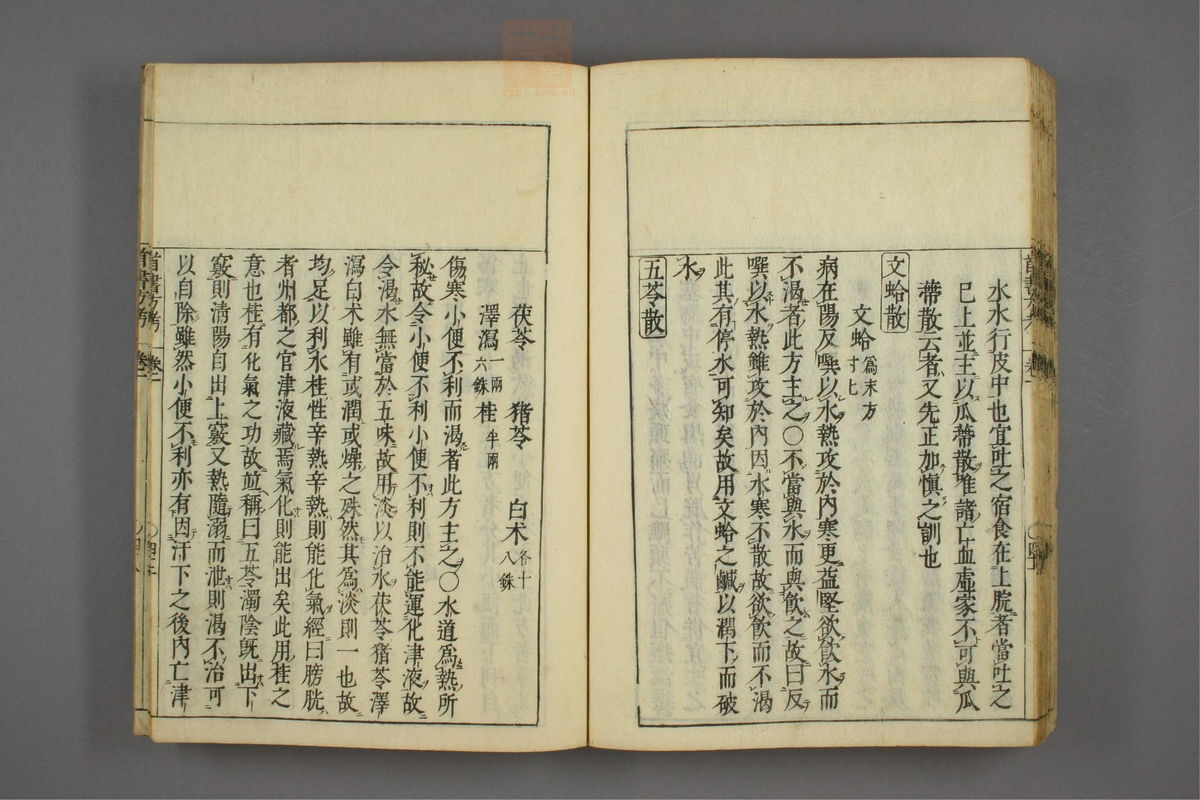 水水行皮中也宜吐之宿食在上脘者當吐之
已上並主以瓜蒂散惟諸亡血虛家不可與瓜
蒂散云者又先正加愼之訓也
文蛤散
文蛤爲末方寸匕
病在陽反噀以水熱攻於內寒更益堅欲飲水而
不渴者此方主之〇不當與水而與飲之故曰反
噀以水熱雖攻於內因水寒不散故欲飲而不渴
此其有停水可知矣故用文蛤之鹹以潤下而破
水
五苓散
茯苓 猪苓 白术各十八銖
澤瀉一兩六銖 桂半兩
傷寒小便不利而渴者此方主之〇水道爲熱所
秘故令小便不利小便不利則不能運化津液故
令渴水無當於五味故用淡以治水茯苓猪苓澤
瀉白术雖有或潤或燥之殊然其爲淡則一也故
均足以利水桂性辛熱辛熱則能化氣經曰膀胱
者州都之官津液藏焉氣化則能出矣此用桂之
意也桂有化氣之功故並稱曰五苓濁陰旣出下
竅則淸陽自出上竅又熱隨溺而泄則渴不治可
以自除雖然小便不利亦有因汗下之後內亡津